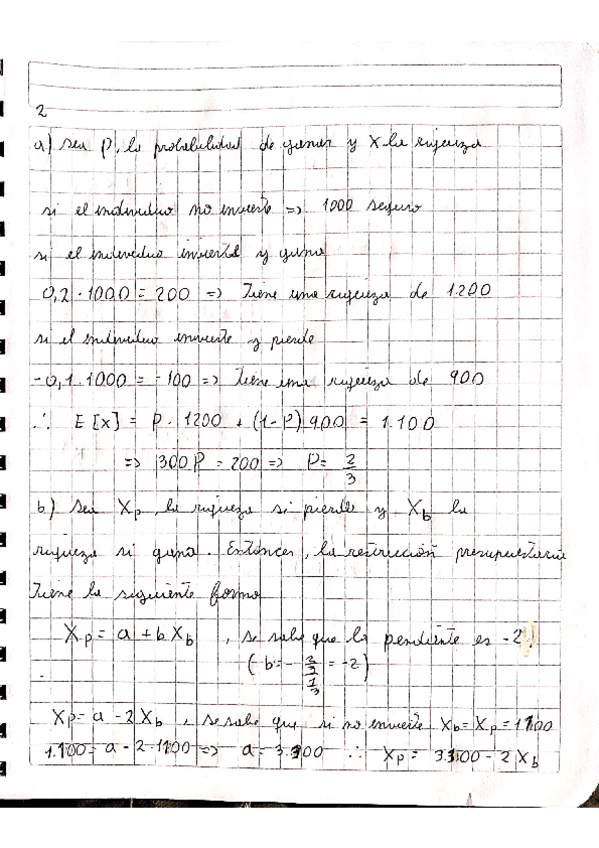 2
a) sea P, la probabilidad de ganar y X la riqueza
si el individuo no invierte => 1000 seguro
si el individuo invierte y gana
0,2 · 1000 = 200 => Tiene una riqueza de 1.200
si el individuo invierte y pierde
-0,1 · 1000 = -100 => Tiene una riqueza de 900
∴ E[x] = P · 1200 + (1-P) 900 = 1.100
=> 300P = 200 => P = 2/3
b) Sea Xp, la riqueza si pierde y Xb la
riqueza si gana. Entonces, la restricción presupuestaria
Tiene la siguiente forma
Xp = a + b Xb , se sabe que la pendiente es -2
(-b = - 2/3 / 1/3 = -2)
Xp = a - 2 Xb , se sabe que si no invierte Xb = Xp = 1100
1.100 = a - 2 · 1100 => a = 3.300 ∴ Xp = 3.300 - 2 Xb